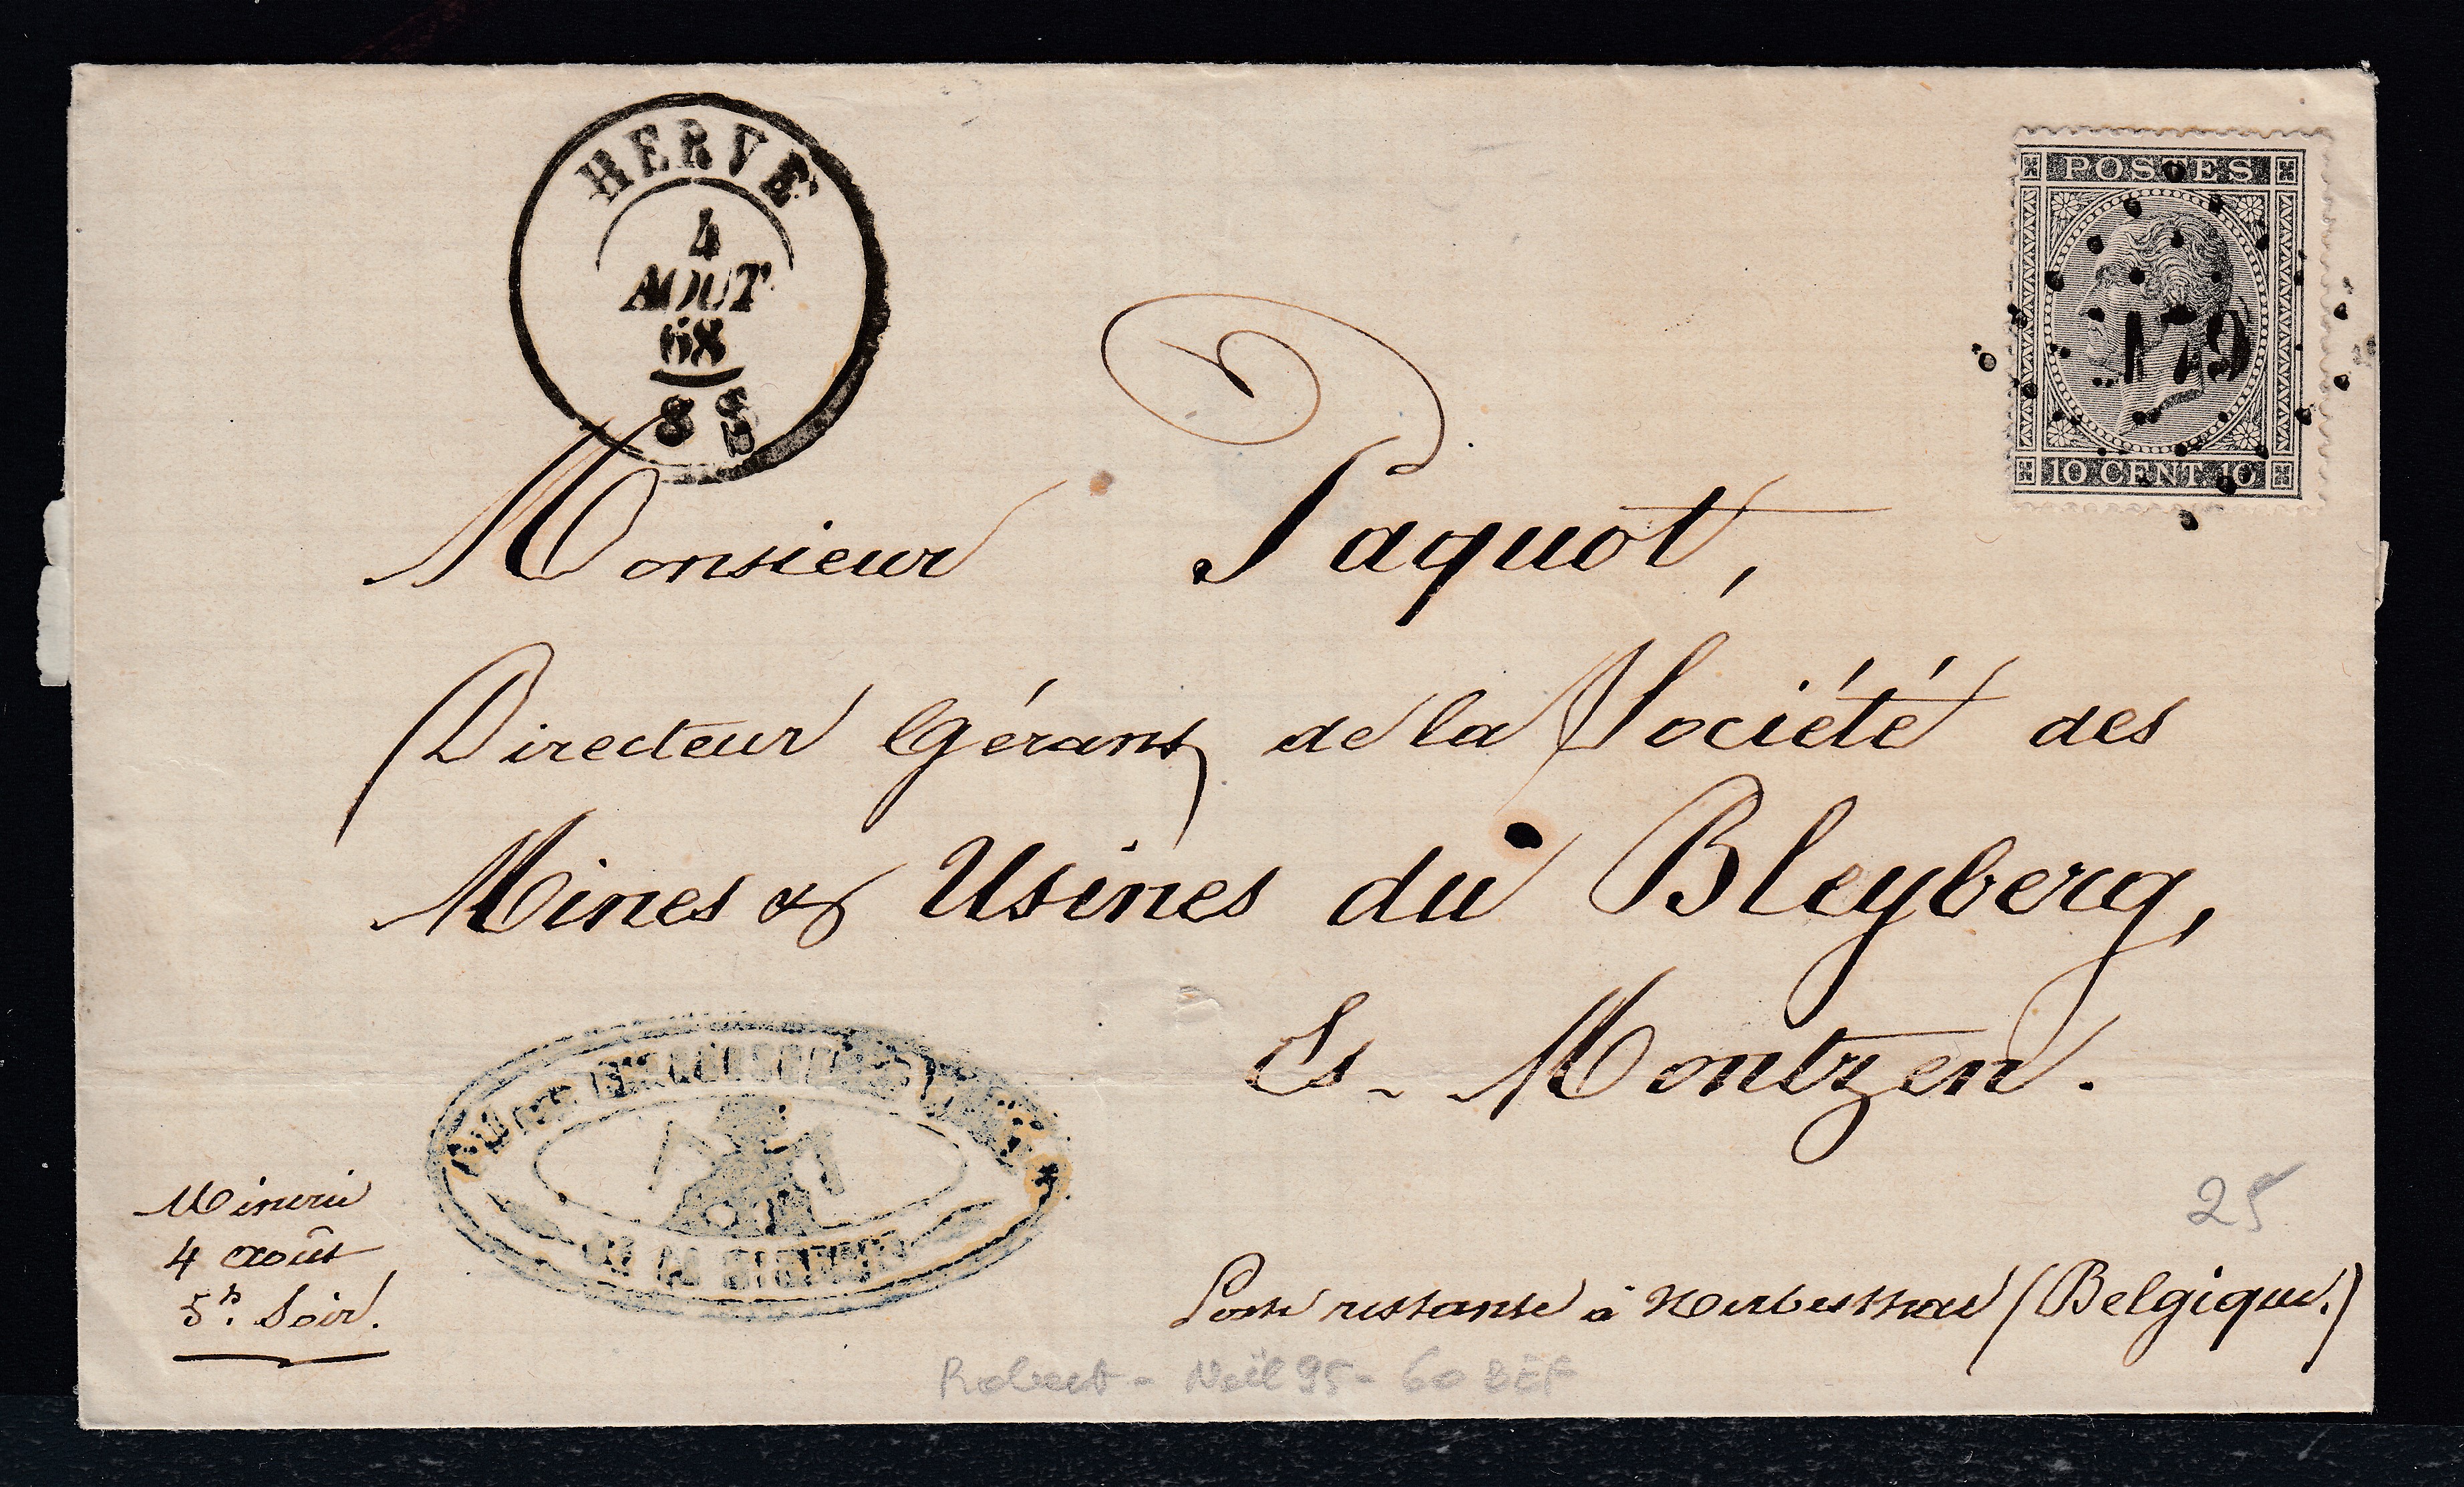 HERVE
4
AOUT
68
8 S
POSTES
179
10 CENT. 10
Monsieur Paquot,
Directeur Gérant de la Société des
Mines & Usines du Bleyberg,
Es- Montzen.
DE LA MINERIE
Minerie
4 août
5h. Soir.
25
Poste restante à Herbesthal (Belgique.)
Robert - Noël 95 - 60 BEF